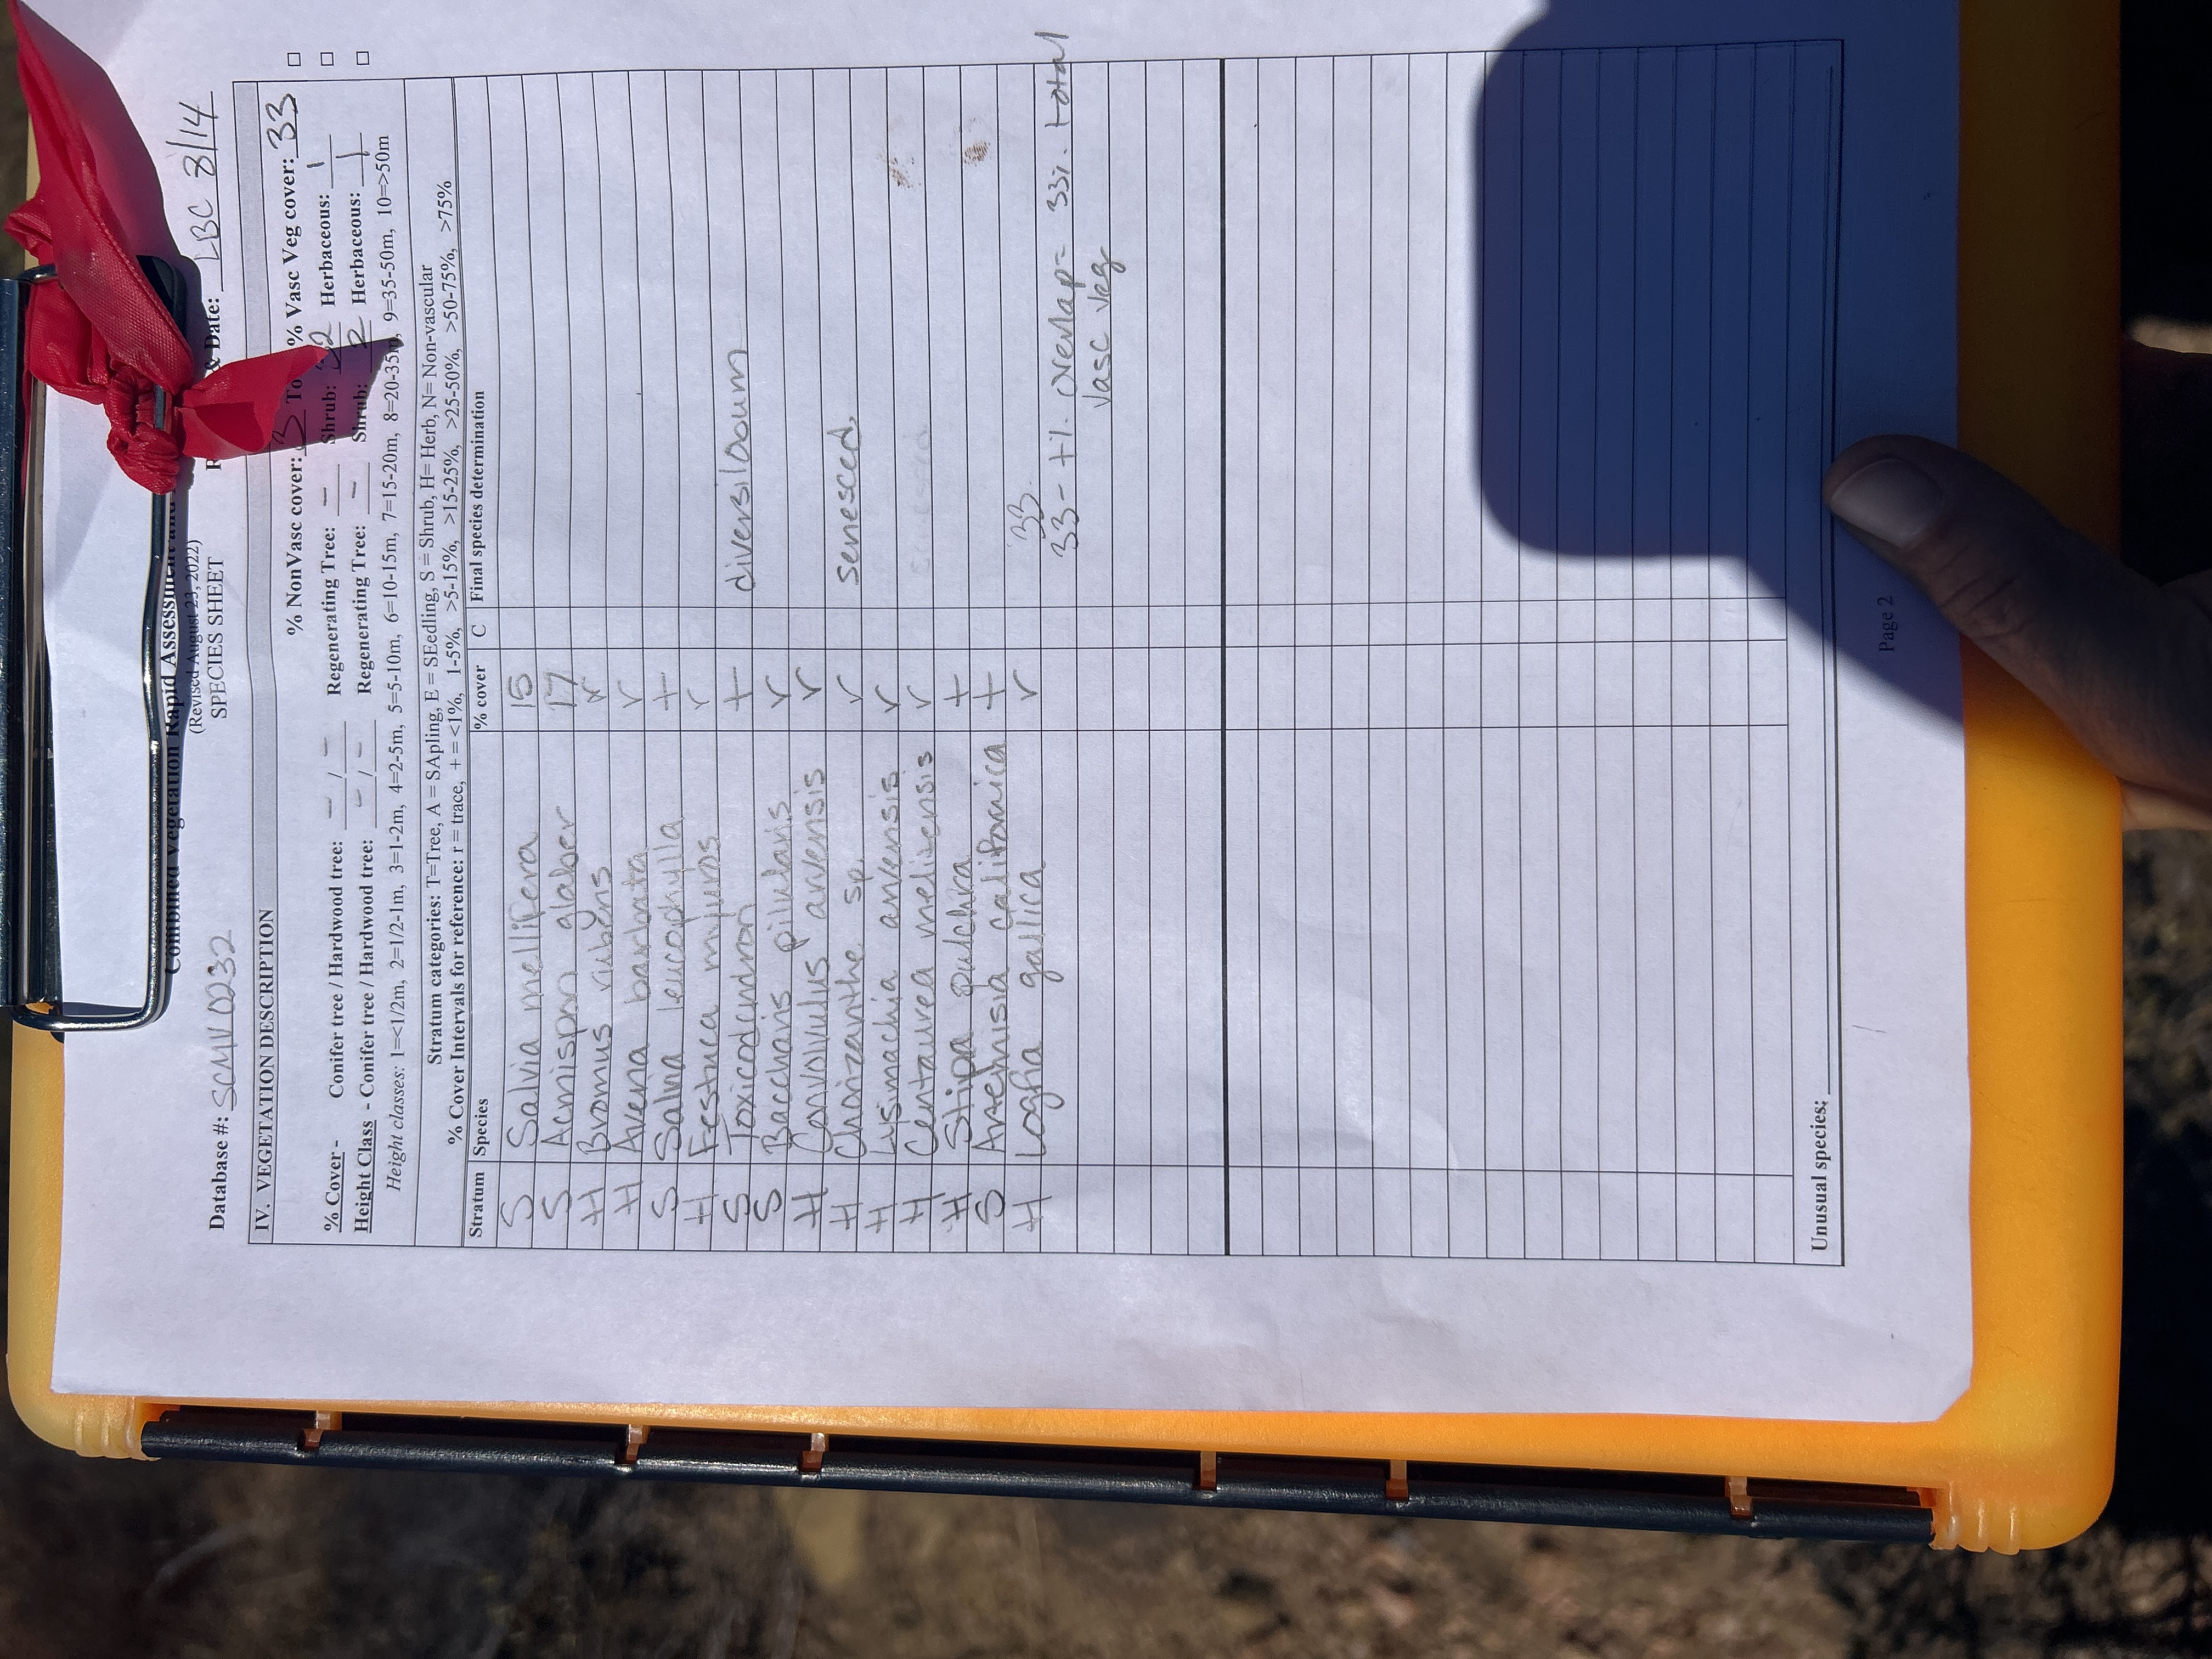 Combined Vegetation Rapid Assessment and
(Revised August 23, 2022)
SPECIES SHEET
Database #: SCMV0232 & Date: LBC 8/14
IV. VEGETATION DESCRIPTION
% NonVasc cover: 3 To % Vasc Veg cover: 33 □
% Cover - Conifer tree / Hardwood tree: - / - Regenerating Tree: - Shrub: 32 Herbaceous: 1 □
Height Class - Conifer tree / Hardwood tree: - / - Regenerating Tree: - Shrub: 2 Herbaceous: 1 □
Height classes: 1=<1/2m, 2=1/2-1m, 3=1-2m, 4=2-5m, 5=5-10m, 6=10-15m, 7=15-20m, 8=20-35m, 9=35-50m, 10=>50m
Stratum categories: T=Tree, A = SApling, E = SEedling, S = Shrub, H= Herb, N= Non-vascular
% Cover Intervals for reference: r = trace, + = <1%, 1-5%, >5-15%, >15-25%, >25-50%, >50-75%, >75%
Stratum Species % cover C Final species determination
S Salvia mellifera 15
S Acmispon glaber 17
H Bromus rubens r
H Avena barbata r
S Salvia leucophylla +
H Festuca myuros r
S Toxicodendron + diversilobum
S Baccharis pilularis r
H Convolvulus arvensis r
H Chorizanthe sp. r senesced.
H Lysimachia arvensis r
H Centaurea melitensis r
H Stipa pulchra +
S Artemisia californica +
H Logfia gallica r 33
33 - +% overlap = 33% total
vasc veg
Unusual species:
Page 2